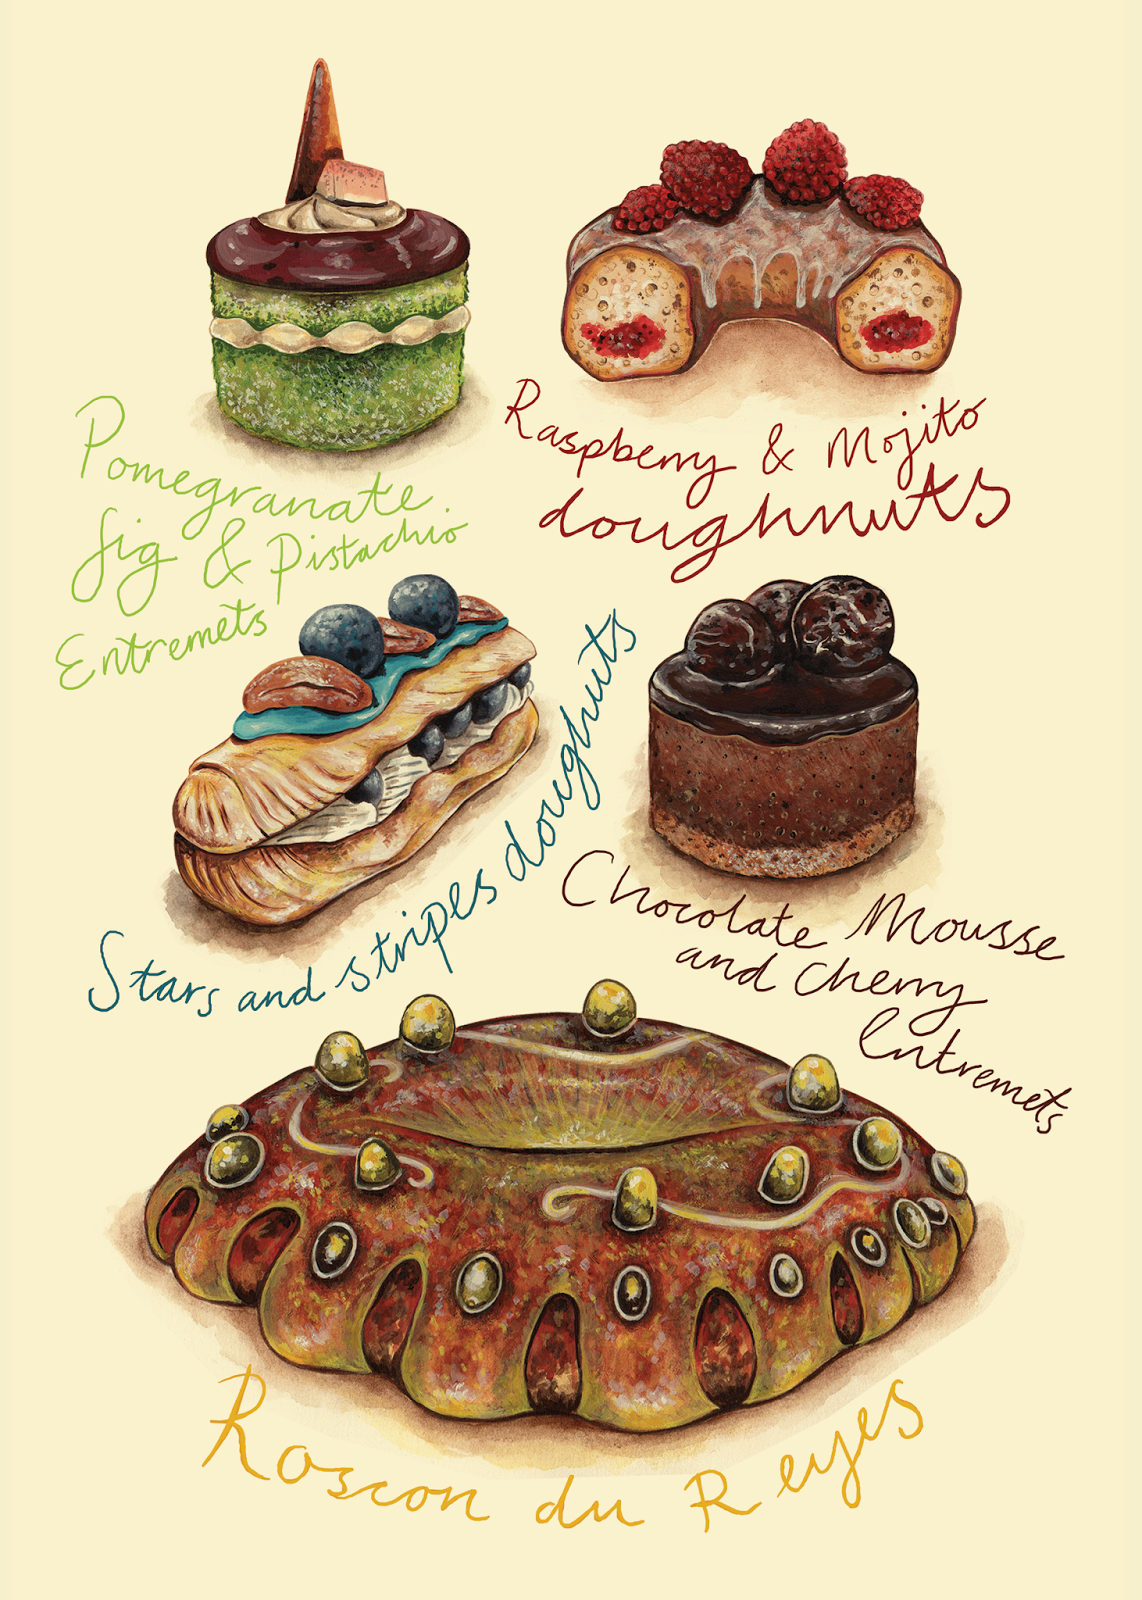 Pomegranate
fig & Pistachio
Entremets
Raspberry & Mojito
doughnuts
Stars and stripes doughnuts
Chocolate Mousse
and Cherry
Entremets
Roscon du Reyes